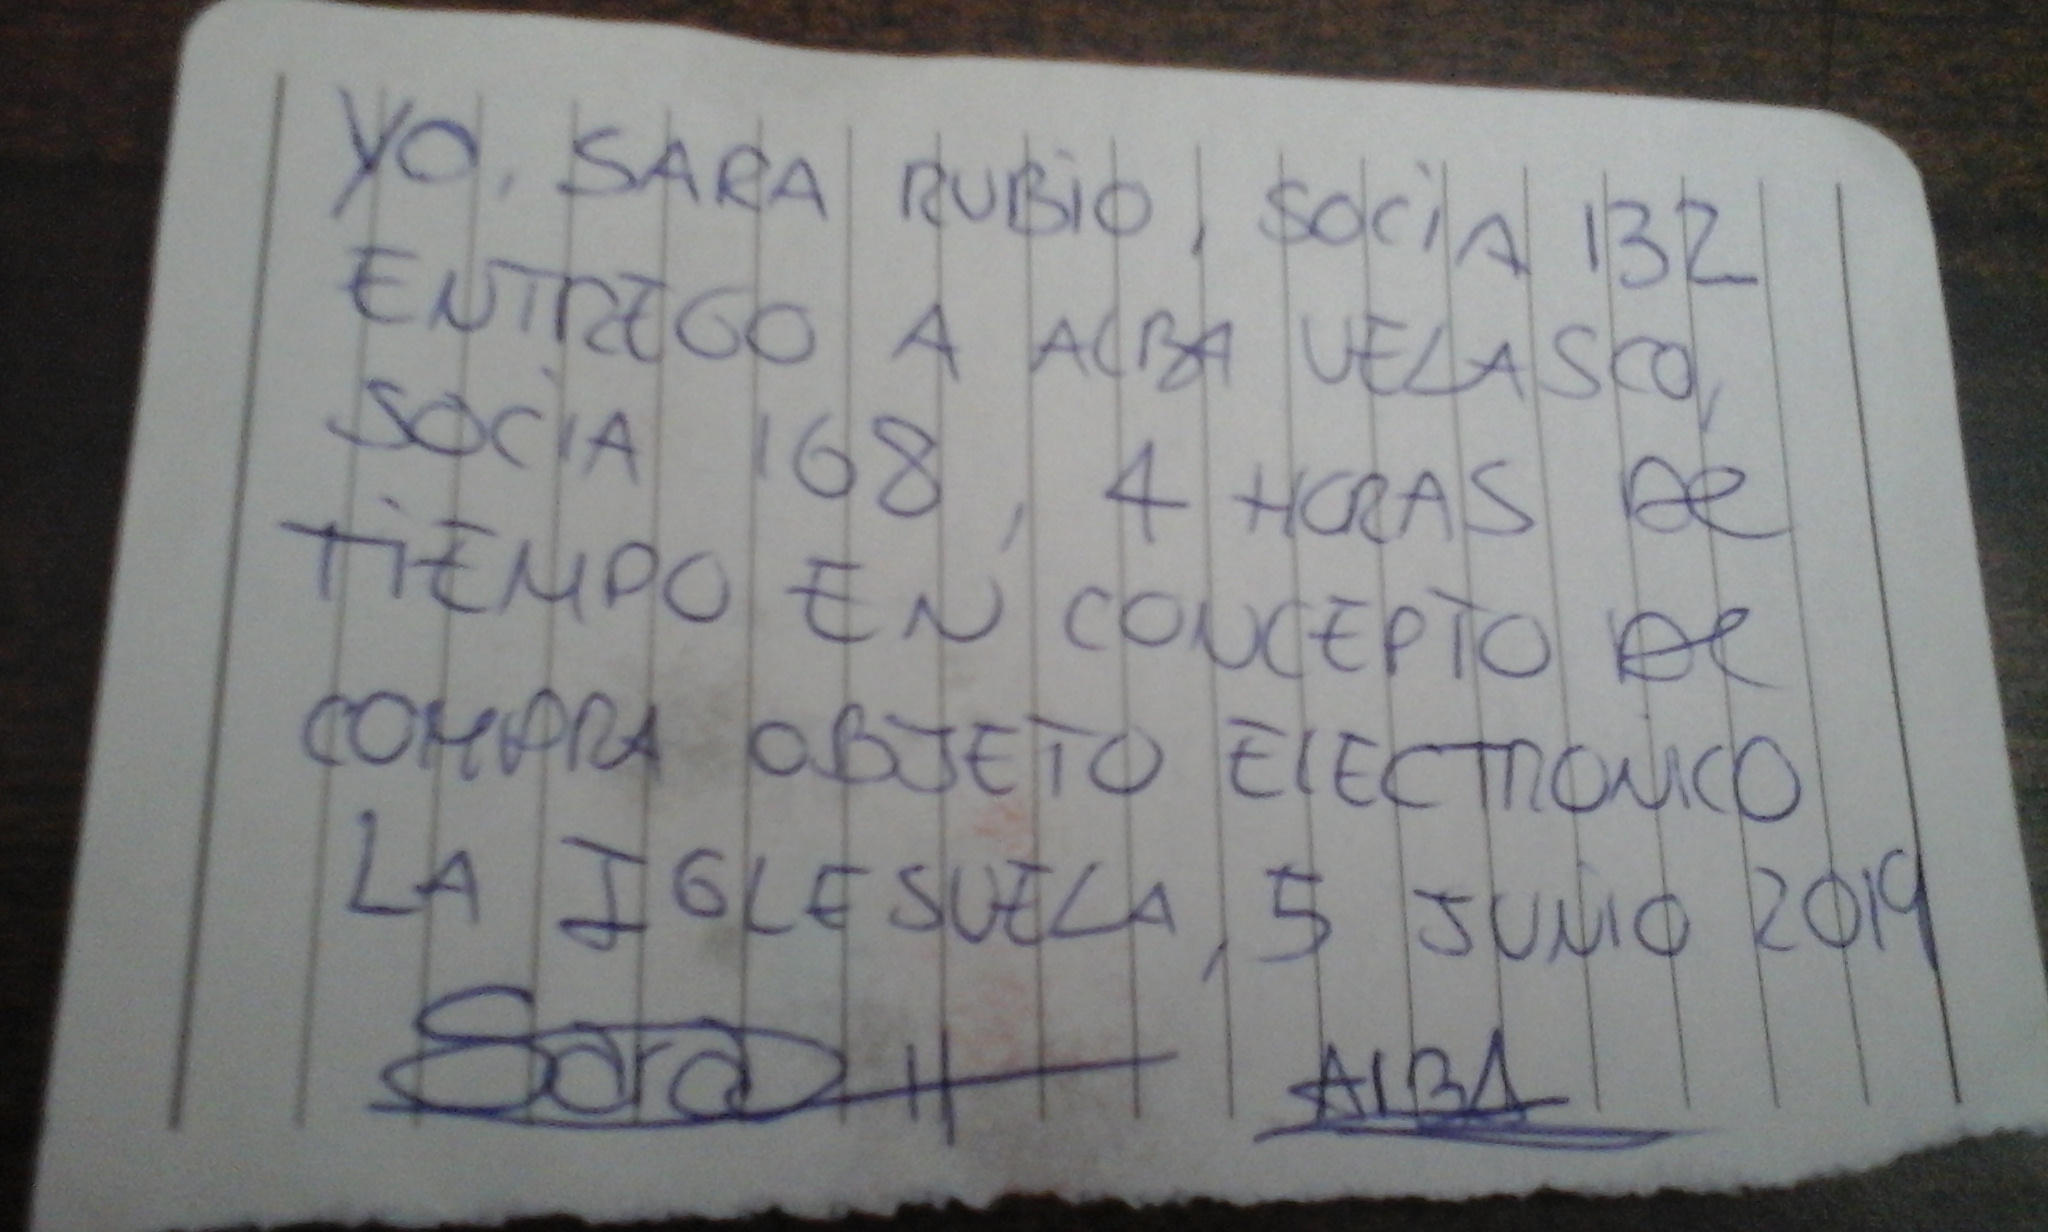 YO, SARA RUBIO, SOCIA 132
ENTREGO A ALBA VELASCO,
SOCIA 168, 4 HORAS DE
TIEMPO EN CONCEPTO DE
COMPRA OBJETO ELECTRONICO
LA IGLESUELA, 5 JUNIO 2019
Sara ALBA